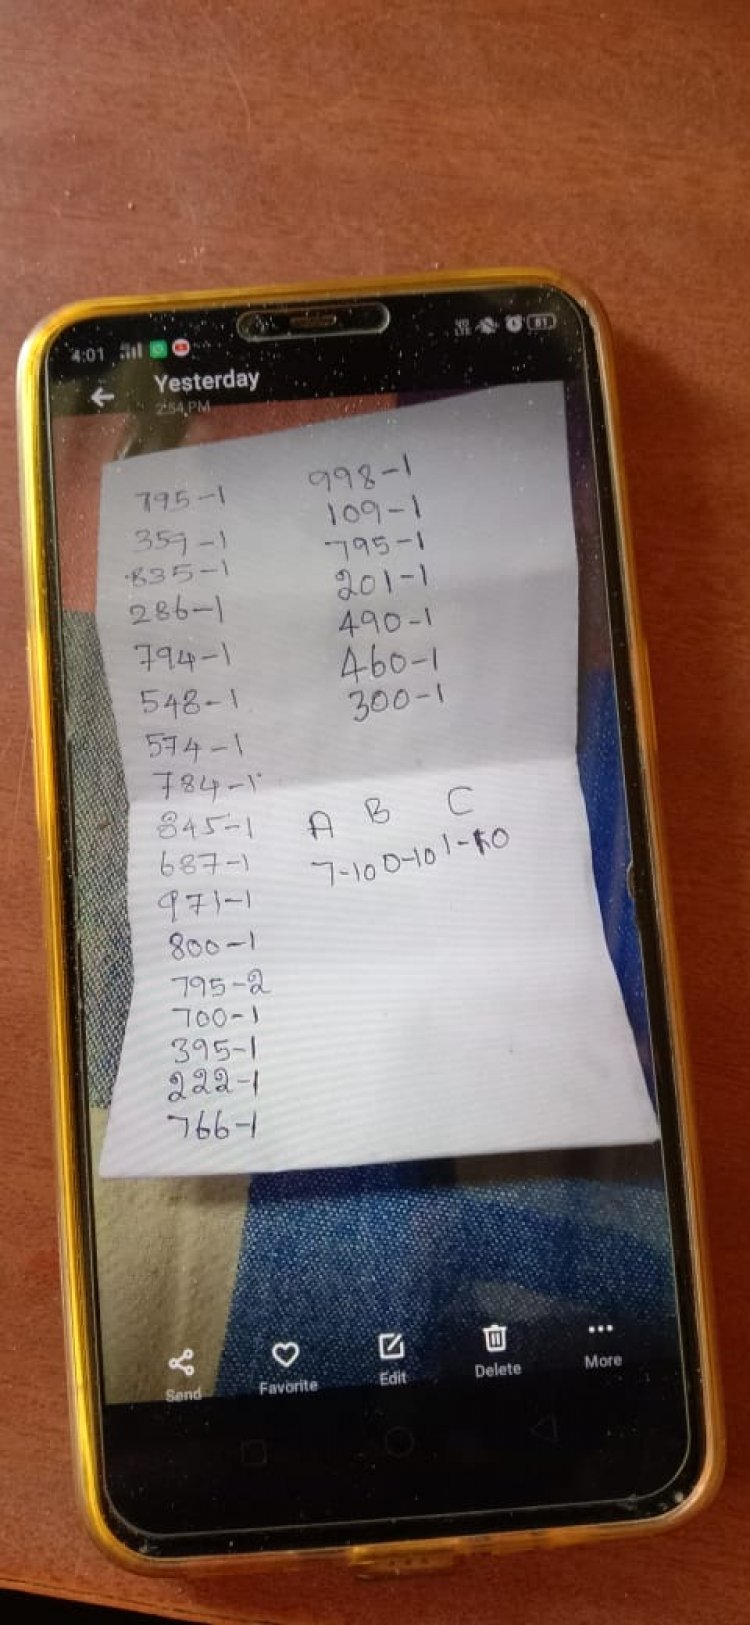 4:01
81
Yesterday
2:54 PM
795-1
359-1
835-1
286-1
794-1
548-1
574-1
784-1
845-1
687-1
971-1
800-1
795-2
700-1
395-1
222-1
766-1
998-1
109-1
795-1
201-1
490-1
460-1
300-1
A B C
7-10 0-10 1-10
Send
Favorite
Edit
Delete
More